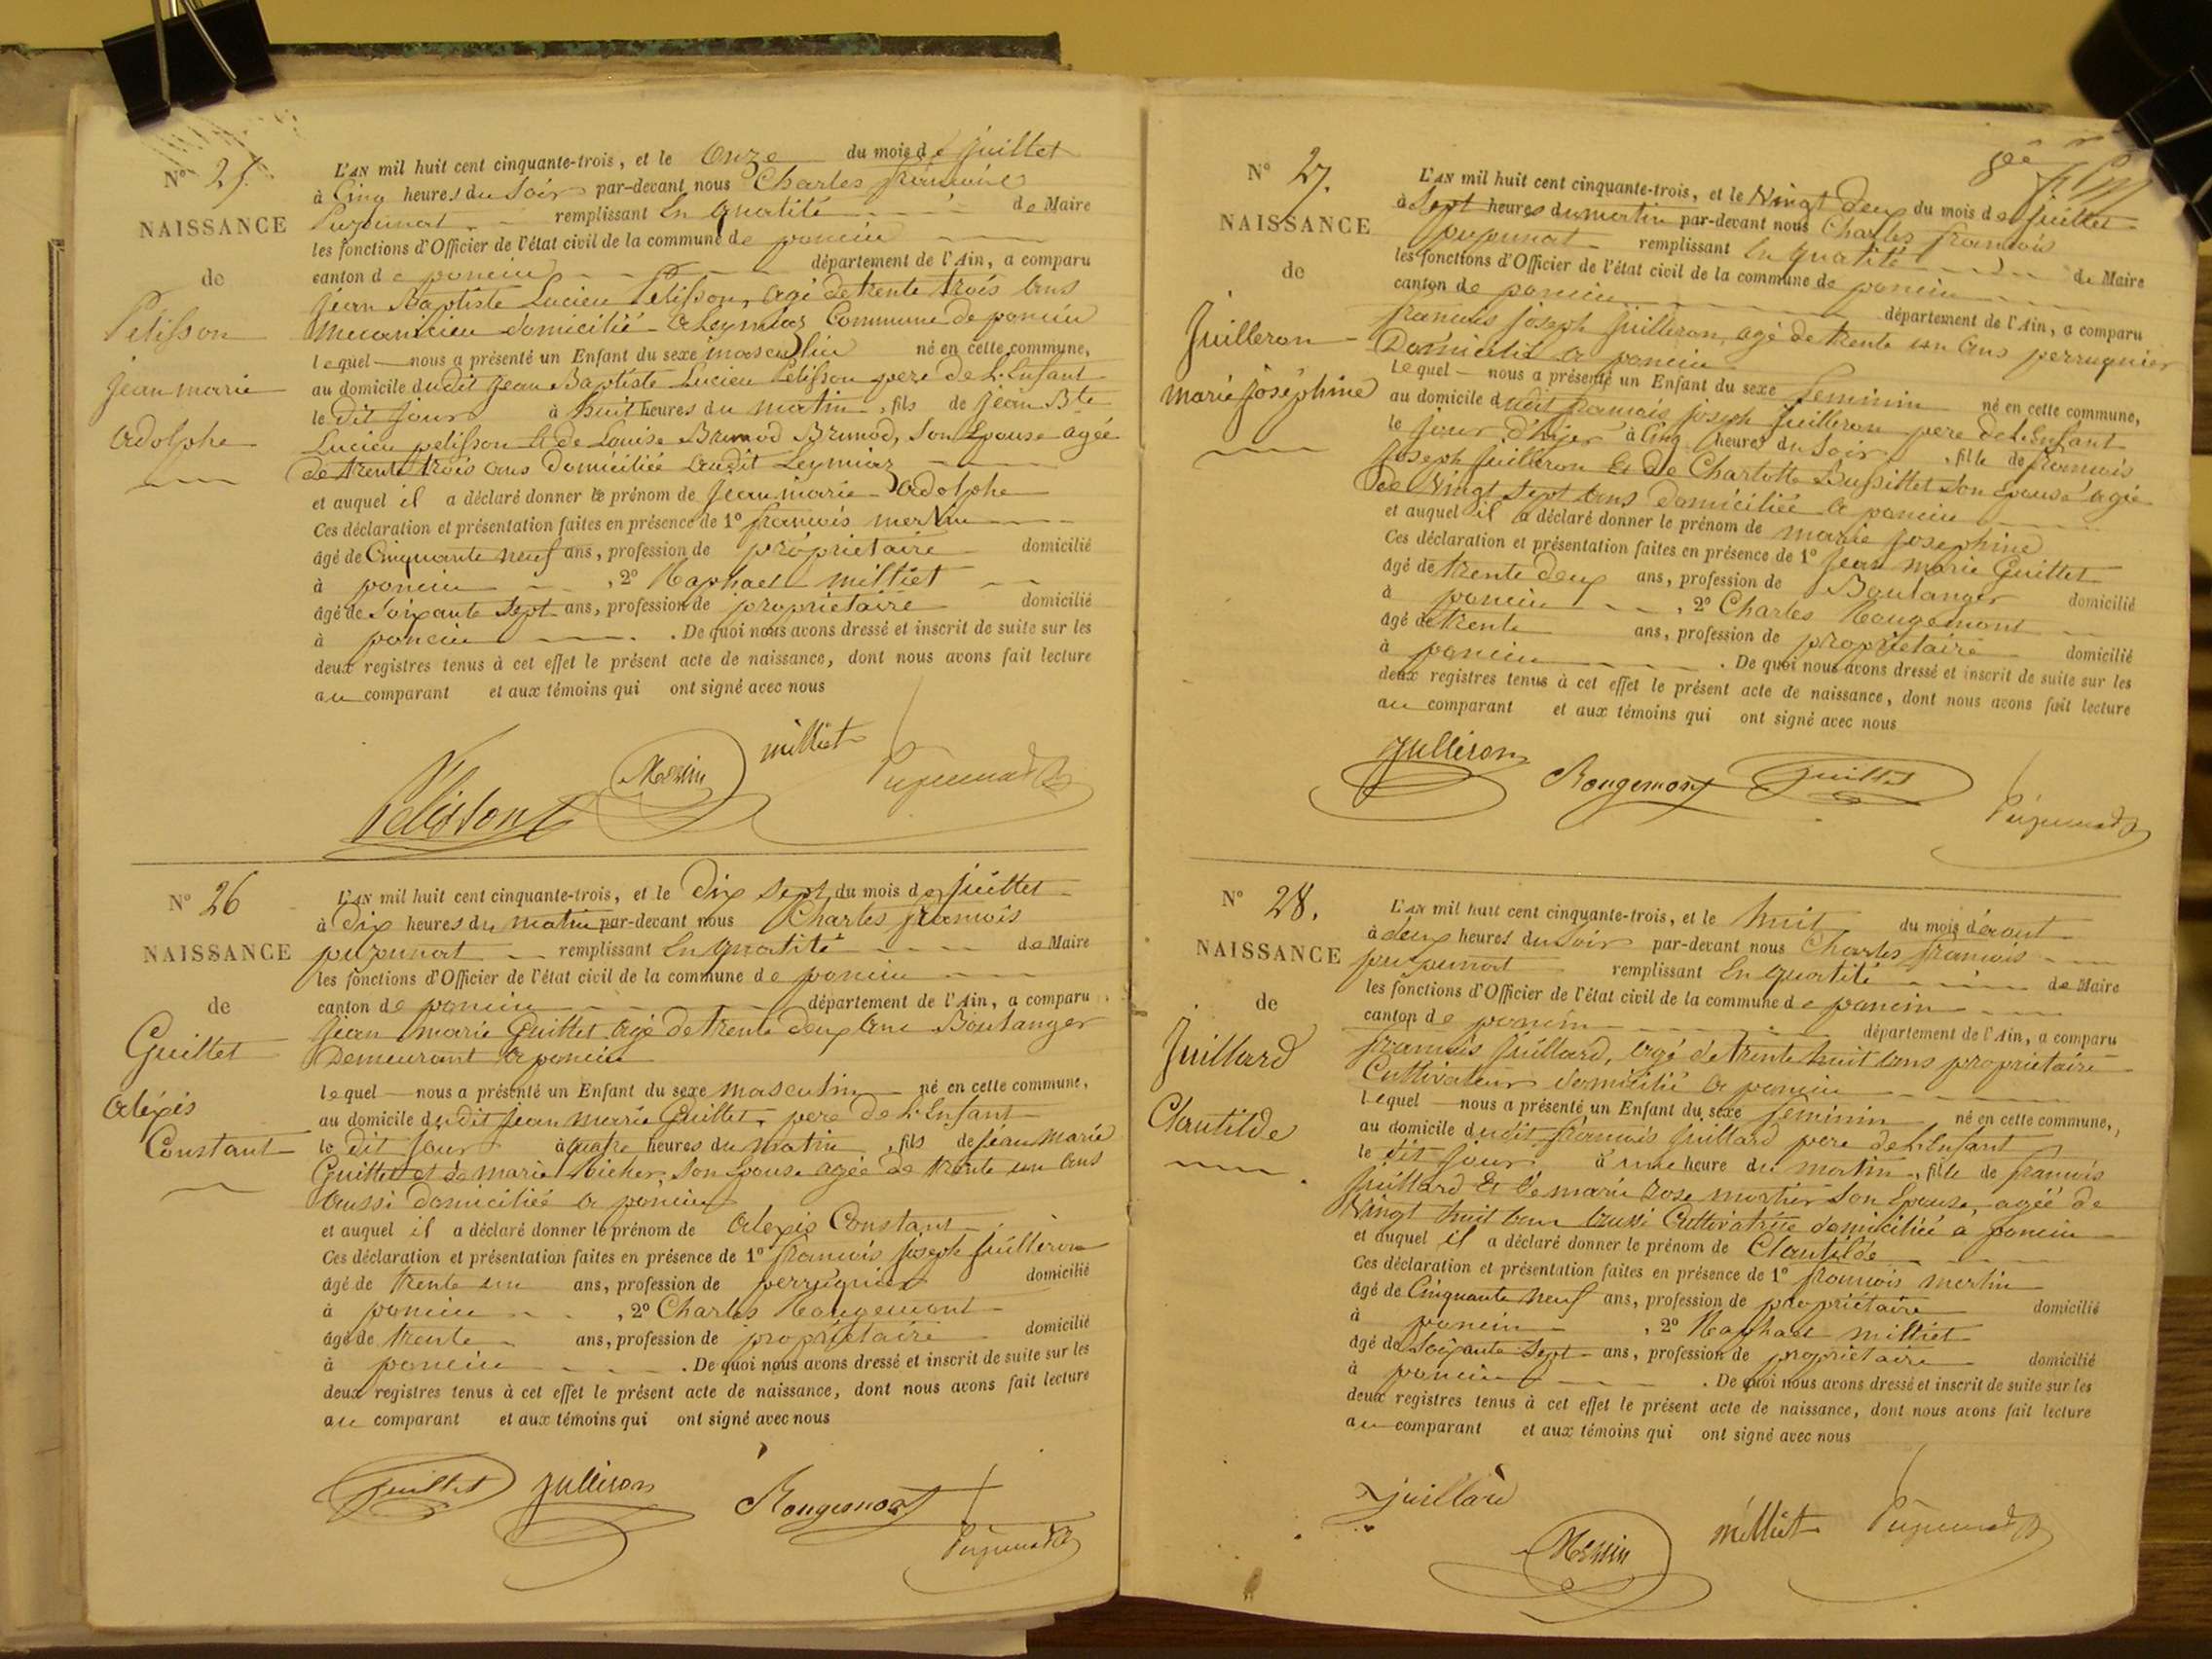 N° 25.
NAISSANCE
de
Pelisson
jean marie
adolphe
L'AN mil huit cent cinquante-trois, et le onze du mois de juillet
à Cinq heures du Soir par-devant nous Charles françois
Pupunat remplissant En qualité de Maire
les fonctions d'Officier de l'état civil de la commune de poncin
canton de poncin département de l'Ain, a comparu
jean Baptiste Lucien Pelisson, agé de trente trois ans
mecanicien domicilié a Leymiaz Commune de poncin
lequel nous a présenté un Enfant du sexe masculin né en cette commune,
au domicile dudit jean Baptiste Lucien Pelisson pere de L'Enfant
le dit jour à huit heures du matin, fils de jean Bte
Lucien pelisson et de Louise Brunod Brunod, Son Epouse agée
de trente trois ans domiciliée audit Leymiaz
et auquel il a déclaré donner le prénom de jean marie adolphe
Ces déclaration et présentation faites en présence de 1° françois merlin
âgé de Cinquante neuf ans, profession de propriétaire domicilié
à poncin, 2° Raphael milliet
âgé de Soixante Sept ans, profession de propriétaire domicilié
à poncin. De quoi nous avons dressé et inscrit de suite sur les
deux registres tenus à cet effet le présent acte de naissance, dont nous avons fait lecture
au comparant et aux témoins qui ont signé avec nous
Pelisson Merlin milliet Pupunat
N° 26
NAISSANCE
de
Guillet
alexis
Constant
L'AN mil huit cent cinquante-trois, et le Dix sept du mois de juillet
à Dix heures du matin par-devant nous Charles françois
pupunat remplissant En qualité de Maire
les fonctions d'Officier de l'état civil de la commune de poncin
canton de poncin département de l'Ain, a comparu
jean marie Guillet agé de trente deux ans Boulanger
Demeurant a poncin
lequel nous a présenté un Enfant du sexe masculin né en cette commune,
au domicile dudit jean marie Guillet, pere de L'Enfant
le dit jour à quatre heures du matin, fils de jean marie
Guillet et de marie Richer, Son Epouse agée de trente un ans
aussi domiciliée a poncin
et auquel il a déclaré donner le prénom de alexis Constant
Ces déclaration et présentation faites en présence de 1° françois joseph juilleron
âgé de trente un ans, profession de perruquier domicilié
à poncin, 2° Charles Rougemont
âgé de trente ans, profession de propriétaire domicilié
à poncin. De quoi nous avons dressé et inscrit de suite sur les
deux registres tenus à cet effet le présent acte de naissance, dont nous avons fait lecture
au comparant et aux témoins qui ont signé avec nous
Guillet Julleron Rougemont Pupunat
N° 27.
NAISSANCE
de
Juilleron
marie joséphine
L'AN mil huit cent cinquante-trois, et le Vingt deux du mois de juillet
à Sept heures du matin par-devant nous Charles françois
pupunat remplissant En qualité de Maire
les fonctions d'Officier de l'état civil de la commune de poncin
canton de poncin département de l'Ain, a comparu
françois joseph juilleron, agé de trente un ans perruquier
Domicilié a poncin
lequel nous a présenté un Enfant du sexe feminin né en cette commune,
au domicile dudit françois joseph juilleron pere de L'Enfant
le jour d'hier à Cinq heures du Soir, fille de françois
joseph juilleron et de Charlotte Bussillet Son Epouse agée
de Vingt Sept ans domiciliée a poncin
et auquel il a déclaré donner le prénom de marie josephine
Ces déclaration et présentation faites en présence de 1° jean marie Guillet
âgé de trente deux ans, profession de Boulanger domicilié
à poncin, 2° Charles Rougemont
âgé de trente ans, profession de propriétaire domicilié
à poncin. De quoi nous avons dressé et inscrit de suite sur les
deux registres tenus à cet effet le présent acte de naissance, dont nous avons fait lecture
au comparant et aux témoins qui ont signé avec nous
Julleron Rougemont Guillet Pupunat
N° 28.
NAISSANCE
de
Juillard
Clautilde
L'AN mil huit cent cinquante-trois, et le huit du mois d'aout
à deux heures du Soir par-devant nous Charles françois
pupunat remplissant En qualité de Maire
les fonctions d'Officier de l'état civil de la commune de poncin
canton de poncin département de l'Ain, a comparu
françois juillard, agé de trente huit ans propriétaire
Cultivateur domicilié a poncin
lequel nous a présenté un Enfant du sexe feminin né en cette commune,
au domicile dudit françois juillard pere de L'Enfant
le dit jour à une heure du matin, fille de françois
juillard et de marie rose mortier Son Epouse, agée de
Vingt huit ans aussi Cultivatrice domiciliée a poncin
et auquel il a déclaré donner le prénom de Clautilde
Ces déclaration et présentation faites en présence de 1° françois merlin
âgé de Cinquante neuf ans, profession de propriétaire domicilié
à poncin, 2° Raphael milliet
âgé de Soixante Sept ans, profession de propriétaire domicilié
à poncin. De quoi nous avons dressé et inscrit de suite sur les
deux registres tenus à cet effet le présent acte de naissance, dont nous avons fait lecture
au comparant et aux témoins qui ont signé avec nous
juillard Merlin milliet Pupunat